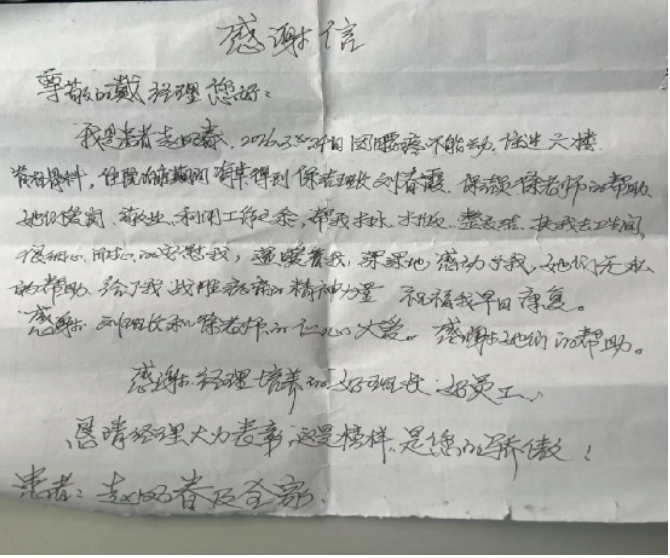 感谢信
尊敬的戴经理您好：
我是患者赵以春，2026.3.24日因腰疼不能动，住进六楼
脊柱骨科，住院治疗期间 得到保洁班长刘春霞、保洁员徐老师的帮助，
她们爱岗、敬业、利用工作之余，帮我打水、打饭、整衣、扶我去卫生间，
很细心、用心的安慰我，温暖着我，深深地感动了我，她们无私
的帮助，给了我战胜病痛的精神力量 祝福我早日康复。
感谢刘班长和徐老师的仁心大爱。感谢她们的帮助。
感谢经理培养的好班长，好员工、
恳请经理大力表彰，这是榜样，是您的骄傲！
患者：赵以春及全家、